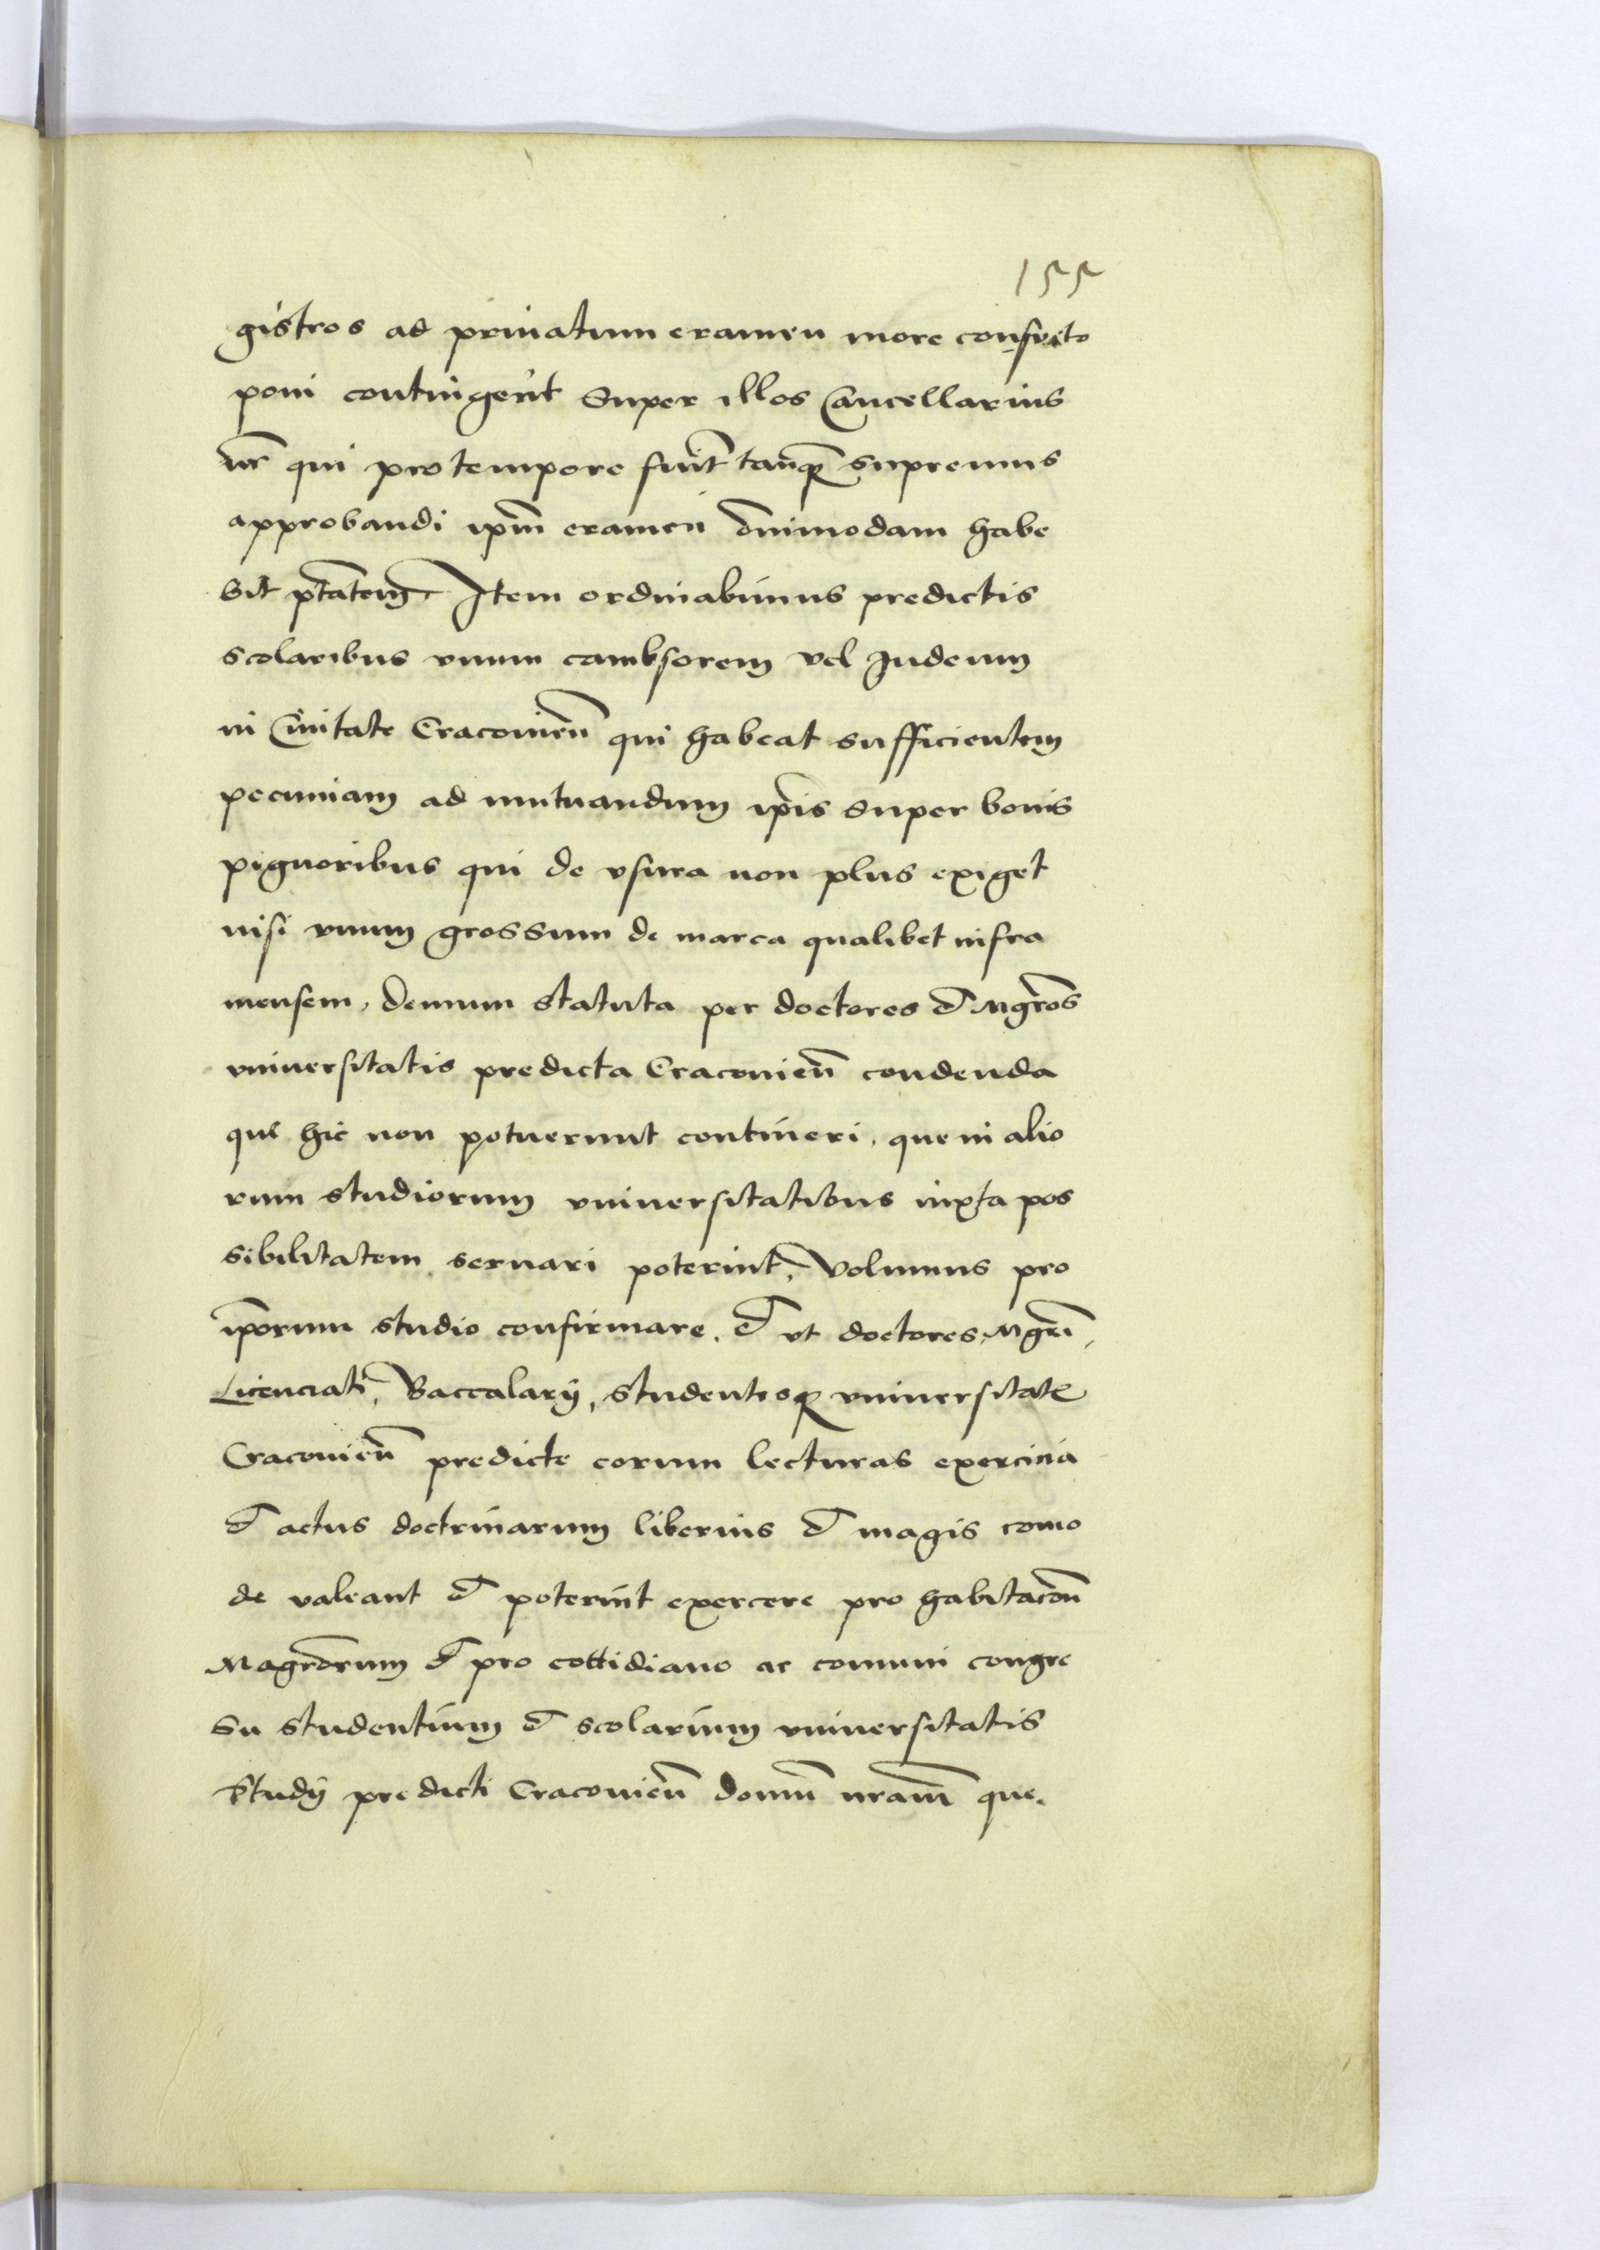 155
gistros ad priuatum examen more consueto
poni contingerit Super illos Cancellarius
nr̄ qui pro tempore fuīt tanq̄ supremus
approbandi ip̄m examen om̄nimodam habe
bit p̄tatem Item ordinabimus predictis
scolaribus vnum cambsorem vel Iudeum
in Ciuitate Cracouien̄ qui habeat sufficientem
pecuniam ad mutuandum ip̄is super bonis
pignoribus qui de vsura non plus exiget
nisi vnum grossum de marca qualibet infra
mensem, demum statuta per doctores & Mgr̄os
vniuersitatis predicta Cracouien̄ condenda
que hic non potuerunt contineri, que in alio
rum studiorum vniuersitatibus iuxta pos
sibilitatem seruari poterint, Volumus pro
ip̄orum studio confirmare. & vt doctores, Mgr̄i,
Licenciati, Baccalarij, studentesq̄ vniuersitate
Cracouien̄ predicte eorum lecturas exercicia
& actus doctrinarum liberius & magis como
de valeant & poterint exercere pro habitacōn
Magr̄orum & pro cottidiano ac comuni congre
su studentium & scolarium vniuersitatis
Studij predicti Cracouien̄ domū nr̄am que.